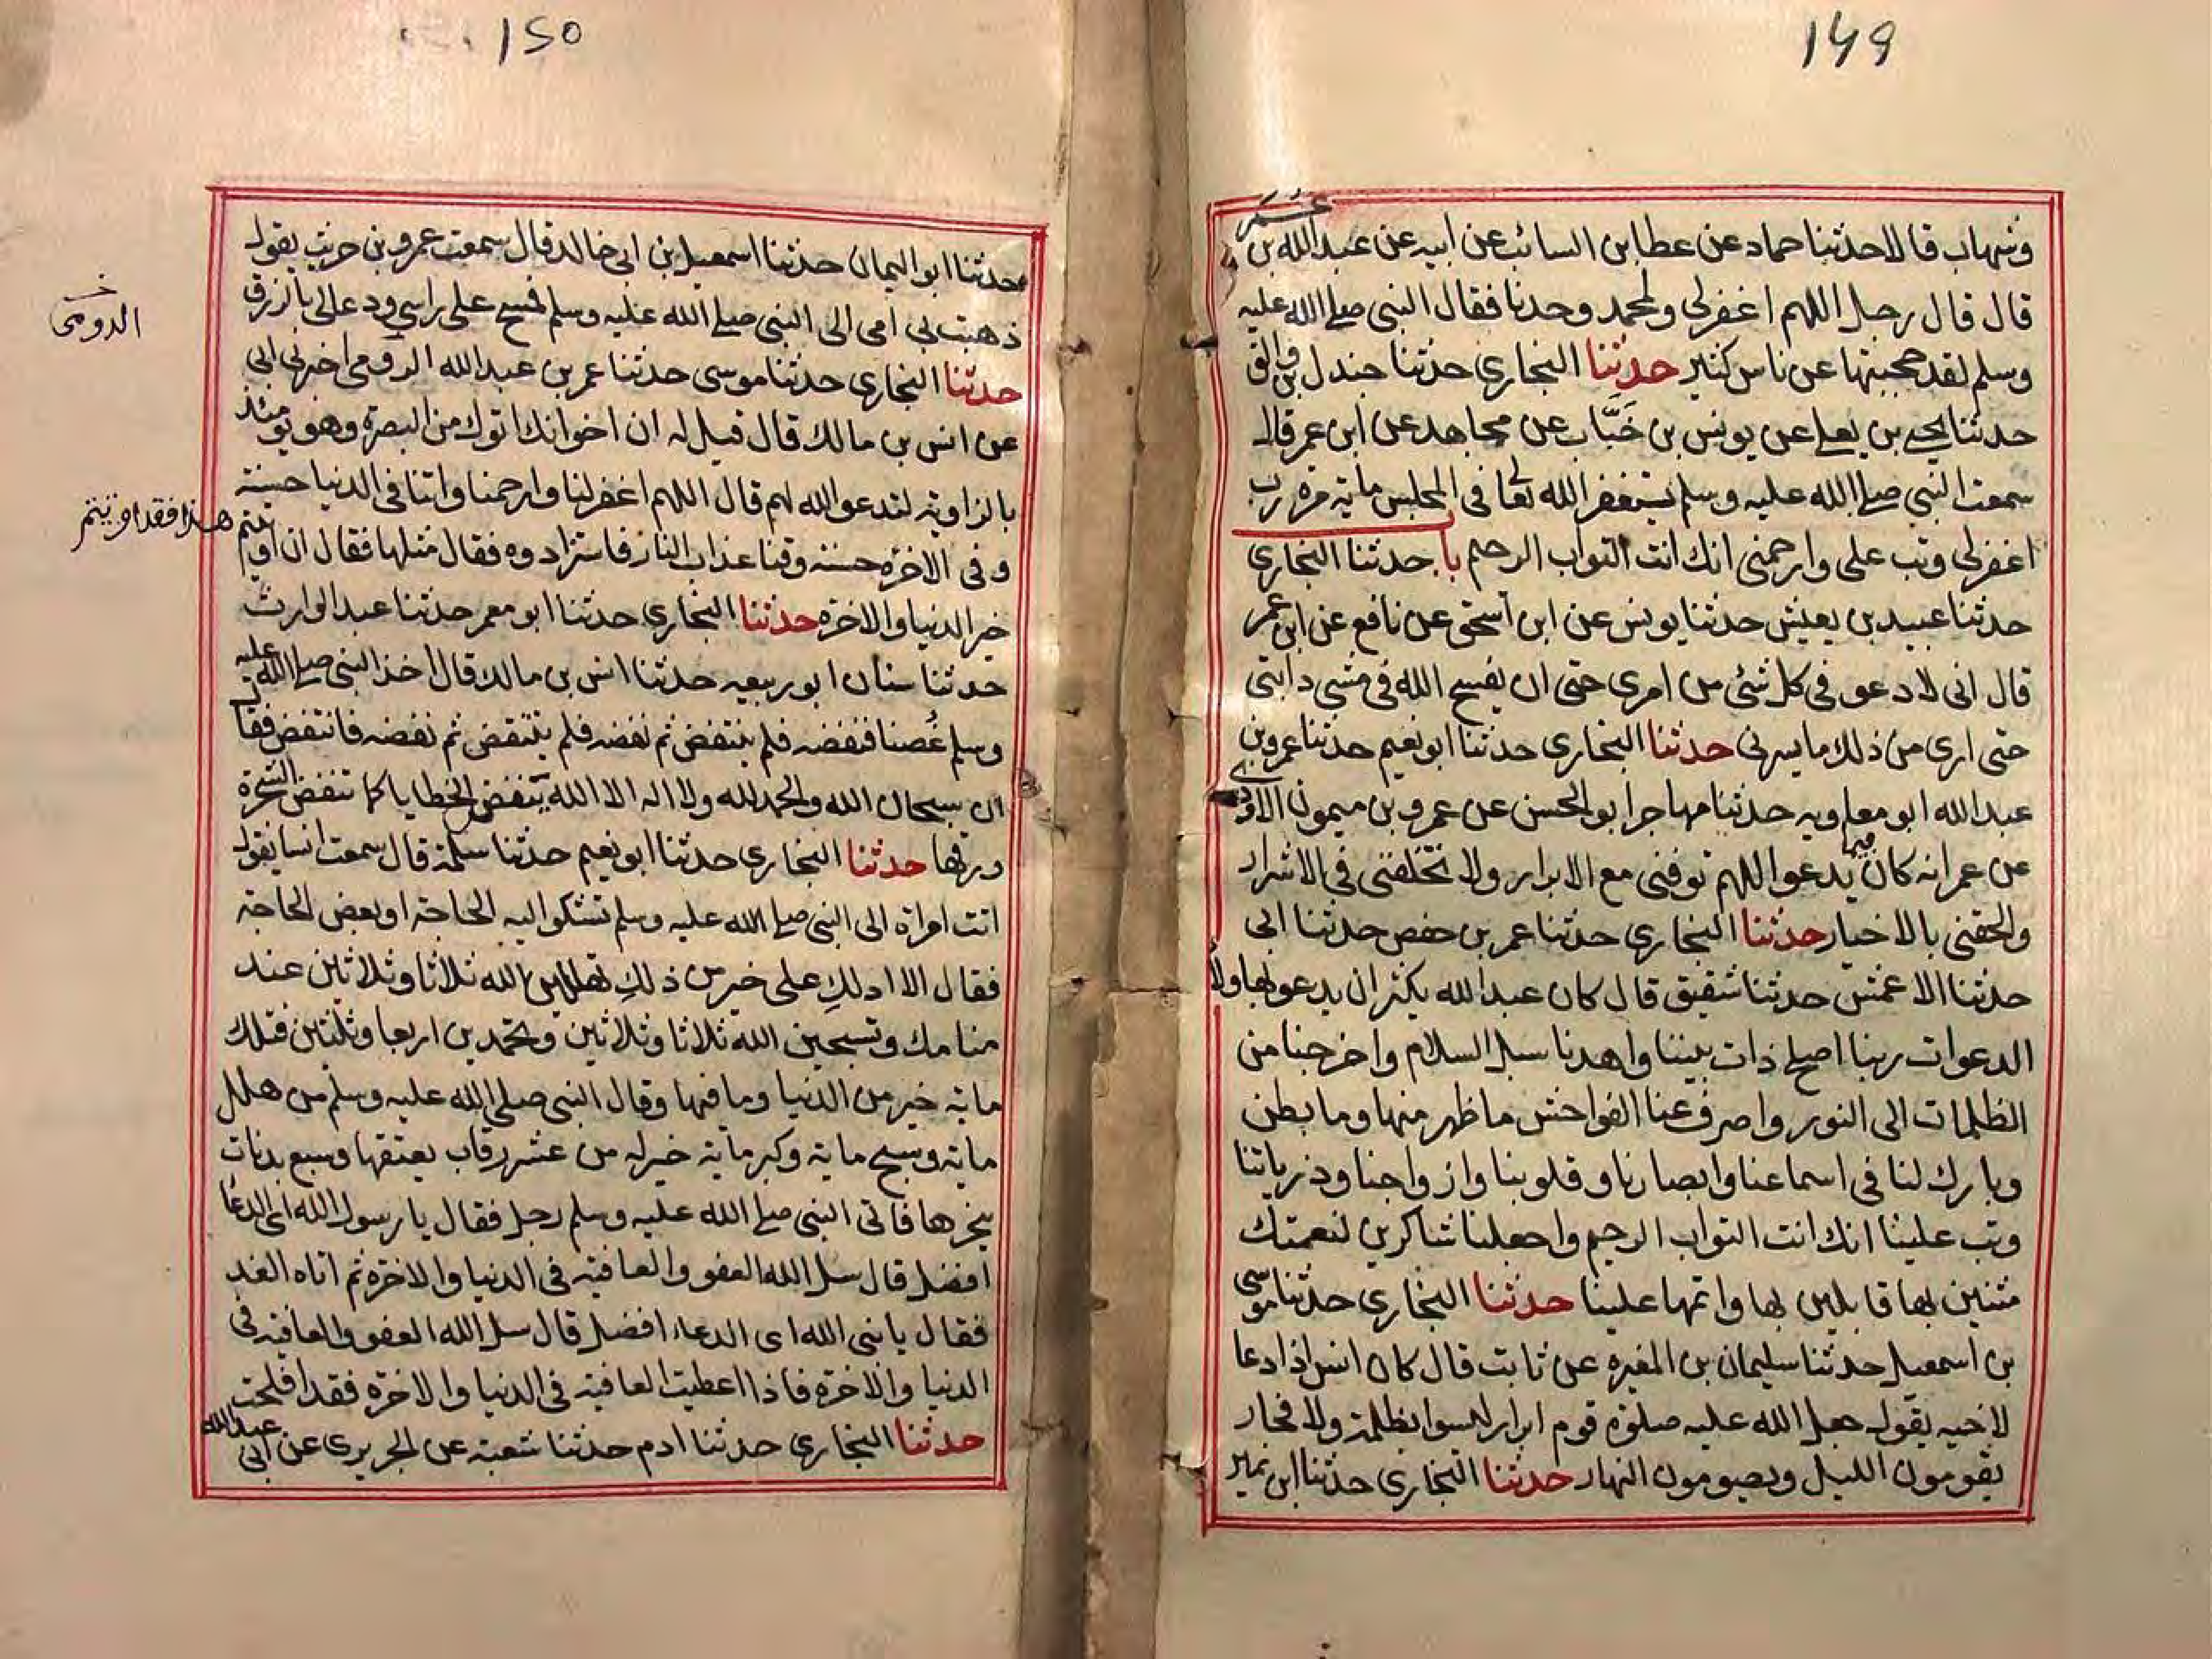 149
وشهاب قالا حدثنا حماد عن عطا بن السائب عن ابيه عن عبد الله بن عمر
قال قال رجل اللهم اغفر لي ولمحمد وحدنا فقال النبي صلى الله عليه
وسلم لقد حجبتها عن ناس كثير حدثنا البخاري حدثنا جندل بن والق
حدثنا يحيى بن يعلى عن يونس بن خَبَّاب عن مجاهد عن ابن عمر قال
سمعت النبي صلى الله عليه وسلم يستغفر الله تعا في المجلس ماية مرة رب
اغفر لي وتب علي وارحمني انك انت التواب الرحيم با حدثنا البخاري
حدثنا عبيد بن يعيش حدثنا يونس عن ابن اسحق عن نافع عن ابن عمر
قال اني لادعو في كل شئ من امري حتى ان يفسح الله في مشي دابتي
حتى ارى من ذلك ما يسرني حدثنا البخاري حدثنا ابو نعيم حدثنا عمرو بن
عبد الله ابو معاويه حدثنا مهاجر ابو الحسن عن عمرو بن ميمون الاودي
عن عمر انه كان فيما يدعو اللهم توفني مع الابرار ولا تخلفني في الاشرار
والحقني بالاخيار حدثنا البخاري حدثنا عمر بن حفص حدثنا ابي
حدثنا الاعمش حدثنا شقيق قال كان عبد الله يكثر ان يدعو بهاولاء
الدعوات ربنا اصلح ذات بيننا واهدنا سبل السلام واخرجنا من
الظلمات الى النور واصرف عنا الفواحش ما ظهر منها وما بطن
وبارك لنا في اسماعنا وابصارنا وقلوبنا وازواجنا وذرياتنا
وتب علينا انك انت التواب الرحيم واجعلنا شاكرين لنعمتك
مثنين بها قابلين بها واتمها علينا حدثنا البخاري حدثنا موسى
بن اسمعيل حدثنا سليمان بن المغيره عن ثابت قال كان انس اذا دعا
لاخيه يقول جعل الله عليه صلوة قوم ابرار ليسوا بظلمة ولا فجار
يقومون الليل ويصومون النهار حدثنا البخاري حدثنا ابن نمير
150
حدثنا ابو اليمان حدثنا اسمعيل بن ابي خالد قال سمعت عمرو بن حريث يقول
ذهبت بي امي الى النبي صلى الله عليه وسلم فمسح على راسي ودعا لي بالرزق
حدثنا البخاري حدثنا موسى حدثنا عمر بن عبد الله الرومي اخبرني ابي
الدومى
عن انس بن مالك قال قيل له ان اخوانك اتوك من البصرة وهو يومئذ
بالزاوية لتدعو الله لهم قال اللهم اغفر لنا وارحمنا واتنا في الدنيا حسنة
وفي الاخرة حسنة وقنا عذاب النار فاستزادوه فقال مثلها فقال ان اوتيتم
هذا فقد اوتيتم
خير الدنيا والاخرة حدثنا البخاري حدثنا ابو معمر حدثنا عبد الوارث
حدثنا سنان ابو ربيعه حدثنا انس بن مالك قال اخذ النبي صلى الله عليه
وسلم غُصنا فنفضه فلم ينتفض ثم نفضه فلم ينتفض ثم نفضه فانتفض فقا
ان سبحان الله والحمد لله ولا اله الا الله ينفضن الخطايا كما تنفض الشجرة
ورقها حدثنا البخاري حدثنا ابو نعيم حدثنا سلمة قال سمعت انسا يقول
اتت امراة الى النبي صلى الله عليه وسلم تشكو اليه الحاجة او بعض الحاجة
فقال الا ادلكِ على خير من ذلكِ تهللين الله ثلاثا وثلاثين عند
منامك وتسبحين الله ثلاثا وثلاثين وتحمدين اربعا وثلثين فتلك
ماية خير من الدنيا وما فيها وقال النبي صلى الله عليه وسلم من هلل
ماية وسبح ماية وكبر ماية خير له من عشر رقاب يعتقها وسبع بدنات
ينحرها فاتى النبي صلى الله عليه وسلم رجل فقال يا رسول الله اي الدعا
افضل قال سل الله العفو والعافية في الدنيا والاخرة ثم اتاه الغد
فقال يا نبي الله اي الدعاء افضل قال سل الله العفو والعافية في
الدنيا والاخرة فاذا اعطيت العافية في الدنيا والاخرة فقد افلحت
حدثنا البخاري حدثنا ادم حدثنا شعبة عن الجريري عن ابي عبد الله